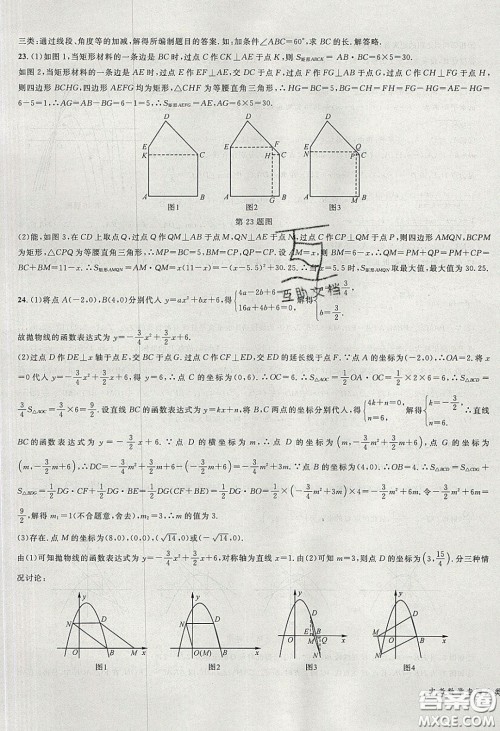 三类:通过线段、角度等的加减,解得所编制题目的答案.如,加条件∠ABC=60°,求BC的长.解答略.
23.(1)如图1,当矩形材料的一条边是BC时,过点C作CK⊥AE于点K,所以S矩形ABCK=AB·BC=6×5=30.
如图2,当矩形材料的一条边是AE时,过点E作EF⊥AE,交CD于点F,过点F作FG⊥AB于点G,过点C作CH⊥FG于点H,
则四边形BCHG,四边形AEFG均为矩形,△CHF为等腰直角三角形.∴HG=BC=5,BG=CH=FH=FG-HG=AE-HG=
6-5=1,∴AG=AB-BG=6-1=5,∴S矩形AEFG=AG·AE=5×6=30.
D
E
K
C
A
B
图1
D
E
F
H
C
A
G
B
图2
D
E
Q
P
C
A
M
B
图3
第23题图
(2)能.如图3,在CD上取点Q,过点Q作QM⊥AB于点M,过点Q作QN⊥AE于点N,过点C作CP⊥QM于点P,则四边形AMQN,
BCPM为矩形,△CPQ为等腰直角三角形.∴MP=BC=5,BM=CP=QP.设AM=x,则BM=6-x,∴QM=PM+QP=PM+CP=
BC+BM=11-x,∴S矩形AMQN=AM·QM=x(11-x)=-(x-5.5)²+30.25.∴当x=5.5时,S矩形AMQN取最大值,最大值为30.25.
24.(1)将点A(-2,0),B(4,0)分别代入y=ax²+bx+6,得{4a-2b+6=0, 16a+4b+6=0.}解得{a=-3/4, b=3/2.}
故抛物线的函数表达式为y=-3/4x²+3/2x+6.
(2)过点D作DE⊥x轴于点E,交BC于点G.过点C作CF⊥ED,交ED的延长线于点F.∵点A的坐标为(-2,0),∴OA=2.将x
=0代入y=-3/4x²+3/2x+6,得y=6,∴点C的坐标为(0,6).∴OC=6.∴S△AOC=1/2OA·OC=1/2×2×6=6,∴S△BCD=
3/4S△AOC=3/4×6=9/2.设直线BC的函数表达式为y=kx+n,将B,C两点的坐标分别代入,得{4k+n=0, n=6.}解得{k=-3/2, n=6.}∴直线
BC的函数表达式为y=-3/2x+6.∵点D的横坐标为m,∴点D的坐标为(m,-3/4m²+3/2m+6),点G的坐标为
(m,-3/2m+6),∴DG=-3/4m²+3/2m+6-(-3/2m+6)=-3/4m²+3m.∵点B的坐标为(4,0),∴OB=4.∴S△BCD=S△CDG+
S△BDG=1/2DG·CF+1/2DG·BE=1/2DG·BO=1/2×(-3/4m²+3m)×4=-3/2m²+6m.令-3/2m²+6m=
9/2,解得m₁=1(不合题意,舍去),m₂=3,∴m的值为3.
(3)存在.点M的坐标为(8,0),(0,0),(√14,0)或(-√14,0).
由(1)可知抛物线的函数表达式为y=-3/4x²+3/2x+6,对称轴为直线x=1.由(2)可知m=3,∴点D的坐标为(3,15/4).分三种情
况讨论:
y
N
D
O
B
M
x
图1
y
N
D
O(M)
B
x
图2
y
D
O
E
M
B
N
x
图3
y
D
M
O
B
x
N
图4
互助文档
答案圈
MXQE.COM